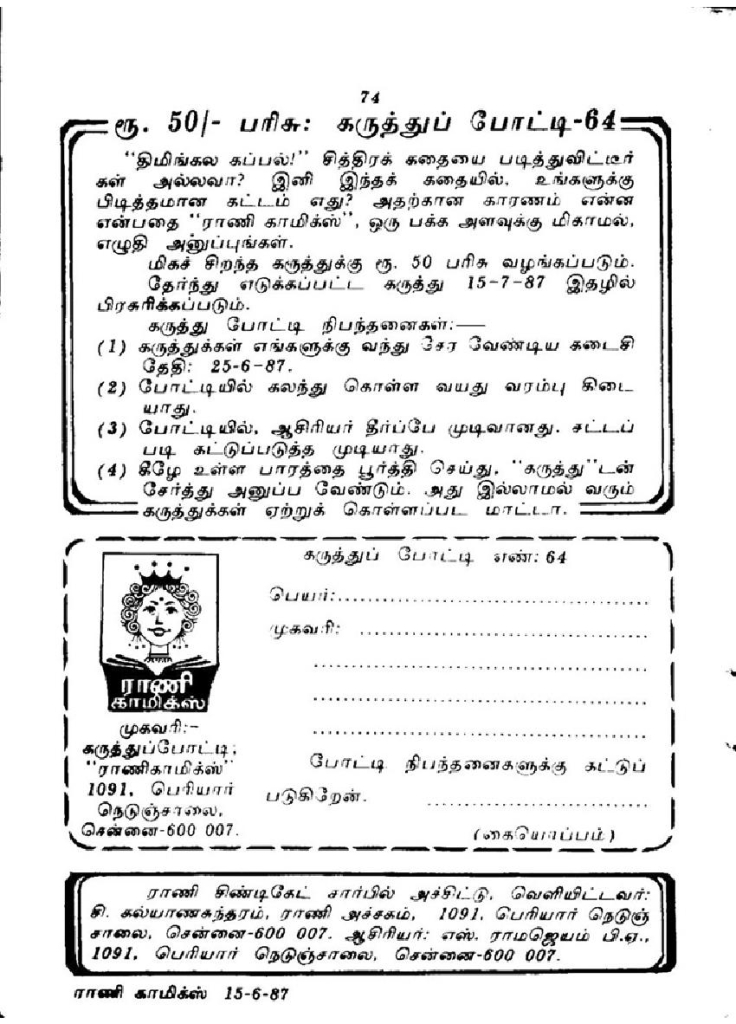 74
ரூ. 50/- பரிசு: கருத்துப் போட்டி-64
"திமிங்கல கப்பல்!" சித்திரக் கதையை படித்துவிட்டீர்
கள் அல்லவா? இனி இந்தக் கதையில், உங்களுக்கு
பிடித்தமான கட்டம் எது? அதற்கான காரணம் என்ன
என்பதை "ராணி காமிக்ஸ்", ஒரு பக்க அளவுக்கு மிகாமல்,
எழுதி அனுப்புங்கள்.
மிகச் சிறந்த கருத்துக்கு ரூ. 50 பரிசு வழங்கப்படும்.
தேர்ந்து எடுக்கப்பட்ட கருத்து 15-7-87 இதழில்
பிரசுரிக்கப்படும்.
கருத்து போட்டி நிபந்தனைகள்:—
(1) கருத்துக்கள் எங்களுக்கு வந்து சேர வேண்டிய கடைசி
தேதி: 25-6-87.
(2) போட்டியில் கலந்து கொள்ள வயது வரம்பு கிடை
யாது.
(3) போட்டியில், ஆசிரியர் தீர்ப்பே முடிவானது. சட்டப்
படி கட்டுப்படுத்த முடியாது.
(4) கீழே உள்ள பாரத்தை பூர்த்தி செய்து, "கருத்து"டன்
சேர்த்து அனுப்ப வேண்டும். அது இல்லாமல் வரும்
கருத்துக்கள் ஏற்றுக் கொள்ளப்பட மாட்டா.
கருத்துப் போட்டி எண்: 64
பெயர்:
முகவரி:
ராணி
காமிக்ஸ்
முகவரி:-
கருத்துப்போட்டி;
"ராணிகாமிக்ஸ்"
1091, பெரியார்
நெடுஞ்சாலை,
சென்னை-600 007.
போட்டி நிபந்தனைகளுக்கு கட்டுப்
படுகிறேன்.
(கையொப்பம்)
ராணி சிண்டிகேட் சார்பில் அச்சிட்டு, வெளியிட்டவர்:
சி. கல்யாணசுந்தரம், ராணி அச்சகம், 1091, பெரியார் நெடுஞ்
சாலை, சென்னை-600 007. ஆசிரியர்: எஸ். ராமஜெயம் பி.ஏ.,
1091, பெரியார் நெடுஞ்சாலை, சென்னை-600 007.
ராணி காமிக்ஸ் 15-6-87